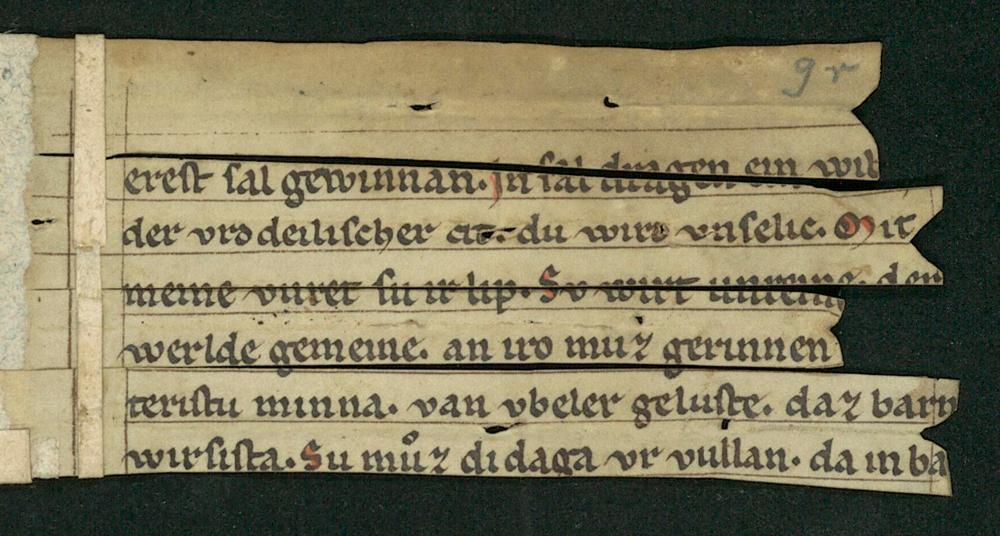 9r
erest sal gewinnan. In sal dragen ein wib
der vrodeilischer at. du wirt vnselic. Mit
meine vuret su ir lip. Sv wirt unreine. den
werlde gemeine. an iro muz gerinnen
teristu minna. van vbeler geluste. daz barn
wirsista. Su muͦz di daga vr vullan. da in ba